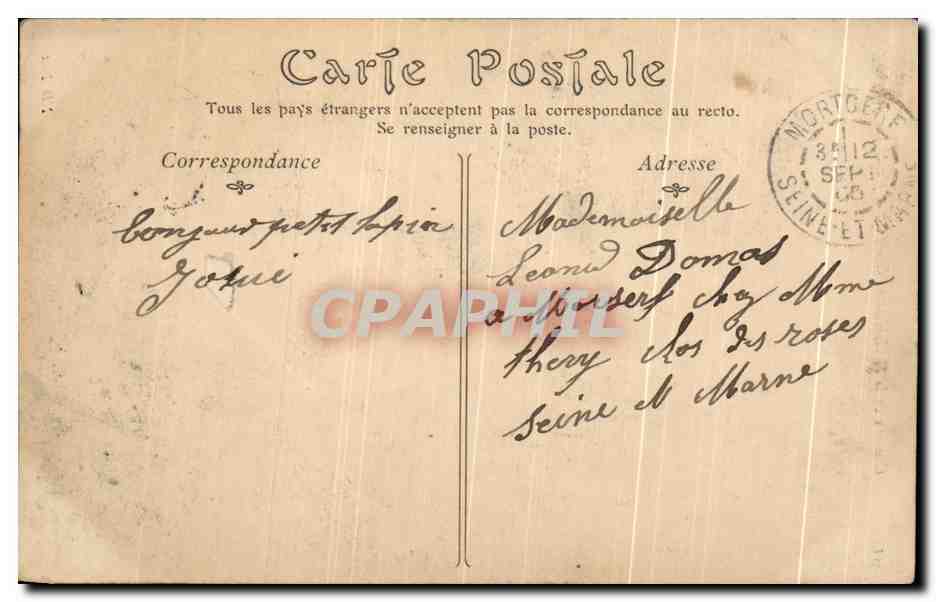 Carte Postale
Tous les pays étrangers n'acceptent pas la correspondance au recto.
Se renseigner à la poste.
Correspondance
Adresse
MORTCERF
3 12
SEPT
SEINE-ET-MARNE
bonjour petit lapin
Mademoiselle
Domas
a Morserf chez Mme
thery clos des roses
seine M Marne
CPAPHIL